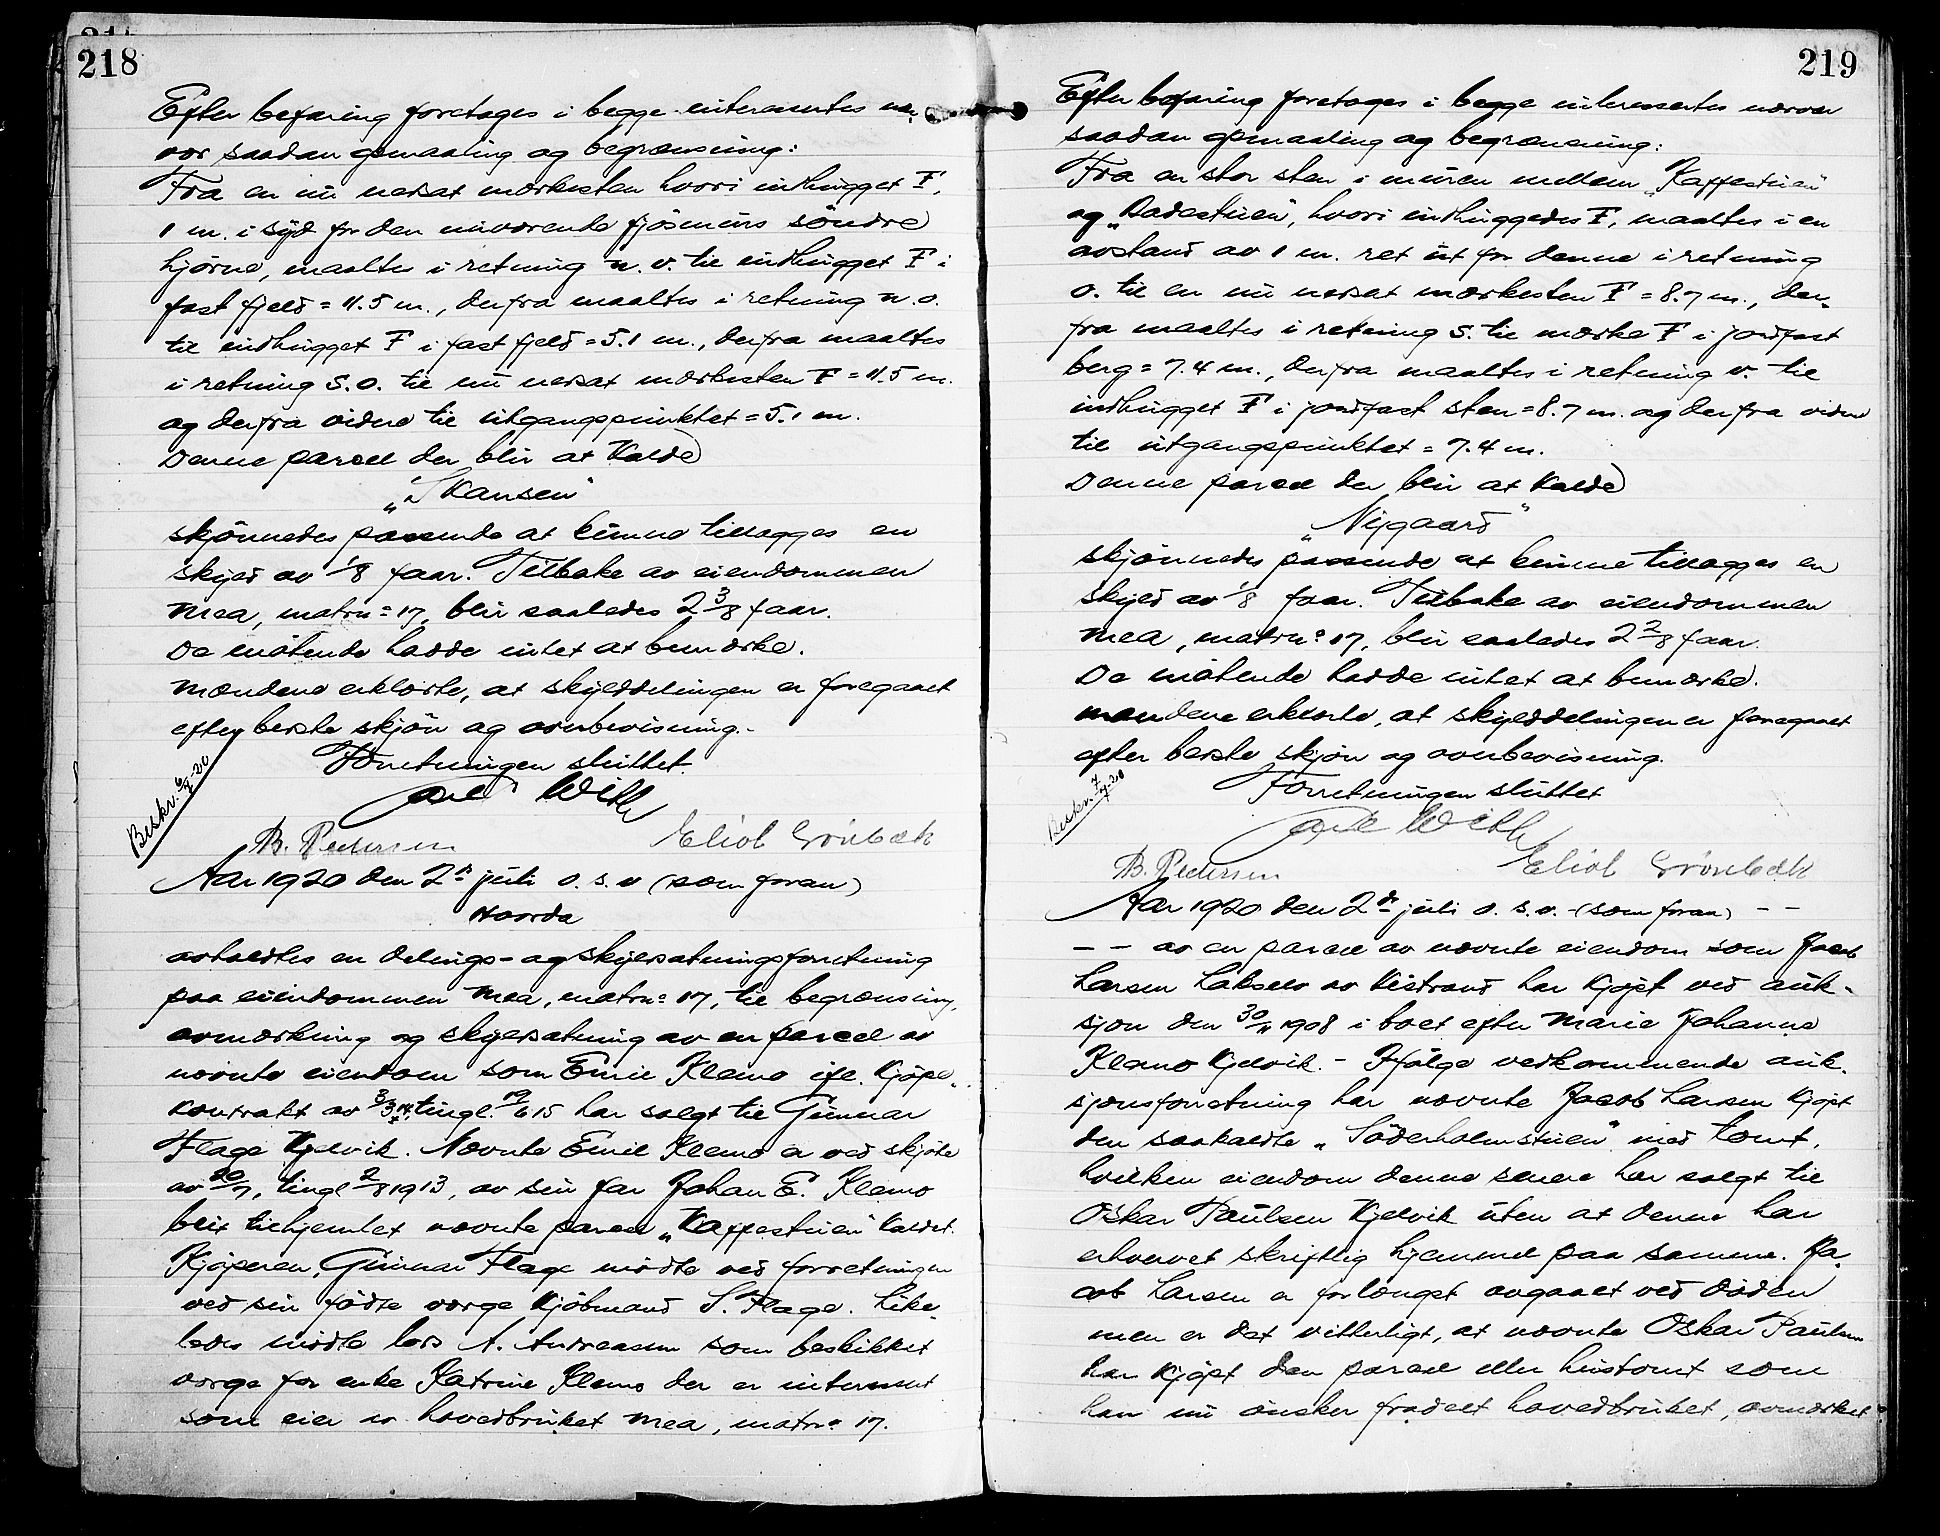 218
Efter befaring foretages i begge interessertes nær-
vær saadan opmaaling og begrænsning:
Fra en nu nedsat merkesten hvori indhugget F,
1 m. i syd for den nuværende fjøsmurs søndre
hjørne, maaltes i retning n. v. til indhugget F i
fast fjeld = 11.5 m., derfra maaltes i retning n. o.
til indhugget F i fast fjeld = 5.1 m., derfra maaltes
i retning s. o. til nu nedsat merkesten F = 11.5 m.
og derfra videre til utgangspunktet = 5.1 m.
Denne parcel der blir at kalde
"Skansen"
skjønnedes passende at kunne tillægges en
skyld av 1/8 faar. Tilbake av eiendommen
Mea, matrn: 17, blir saaledes 2 3/8 faar.
De møtende hadde intet at bemærke.
Mændene erklærte, at skylddelingen er foregaaet
efter beste skjøn og overbevisning.-
Forretningen sluttet.
Beskr. 6/7-20
Axel With
B. Pedersen Eliot Grönbæk
Aar 1920 den 2n juli o. s. v (som foran)
avholdtes en delings- og skyldsætningsforretning
paa eiendommen Mea, matrn: 17, til begrænsing,
avmerkning og skyldsætning av en parcel av
nævnte eiendom som Emil Klemo ifl. kjøpe-
kontrakt av tingl. 19/6 15 har solgt til Gunnar
Flage Kjelvik. Nævnte Emil Klemo er ved skjøte
av 20/7, tingl 2/8 1913, av sin far Johan E. Klemo
blit tilhjemlet nævnte parcel "Kaffestuen" kaldet.
Kjøperen, Gunnar Flage møtte ved forretningen
ved sin fødte værge Kjøbmand S. Flage. Like-
ledes møtte A. Andreassen som beskikket
værge for enke Katrine Klemo der er interessert
som eier av hovedbruket Mea, matrn: 17.
219
Efter befaring foretages i begge interessertes nærvær
saadan opmaaling og begrænsning:
Fra en stor sten i muren mellem "Kaffestuen"
og "Badestuen", hvori indhuggedes F, maaltes i en
avstand av 1 m. ret ut for denne i retning
o. til en nu nedsat merkesten F = 8.7 m., der-
fra maaltes i retning s. til merke F i jordfast
berg = 7.4 m., derfra maaltes i retning v. til
indhugget F i jordfast sten = 8.7 m. og derfra videre
til utgangspunktet = 7.4 m.
Denne parcel der blir at kalde
"Nygaard"
skjønnedes passende at kunne tillægges en
skyld av 1/8 faar. Tilbake av eiendommen
Mea, matrn: 17, blir saaledes 2 2/8 faar.
De møtende hadde intet at bemerke.
Mændene erklærte, at skylddelingen er foregaaet
efter beste skjøn og overbevisning.
Forretningen sluttet
Beskr. 7/7-20
Axel With
B. Pedersen Eliot Grönbæk
Aar 1920 den 2de juli o. s. v. - (som foran) - -
- - av en parcel av nævnte eiendom som Jacob
Larsen Lakselv av Kistrand har kjøpt ved auk-
sjon den 30/11 1908 i boet efter Marie Johanne
Klemo Kjelvik. - Ifølge vedkommende auk-
sjonsforretning har nævnte Jacob Larsen kjøpt
den saakaldte "Söderholmstuen" med tomt,
hvilken eiendom denne senere har solgt til
Oskar Paulsen Kjelvik uten at denne har
erhvervet skriftlig hjemmel paa samme. Ja-
cob Larsen er forlængst avgaaet ved døden
men er det vitterligt, at nævnte Oskar Paulsen
har kjøpt den parcel eller hustomt som
han nu ønsker fradelt hovedbruket, avmerket